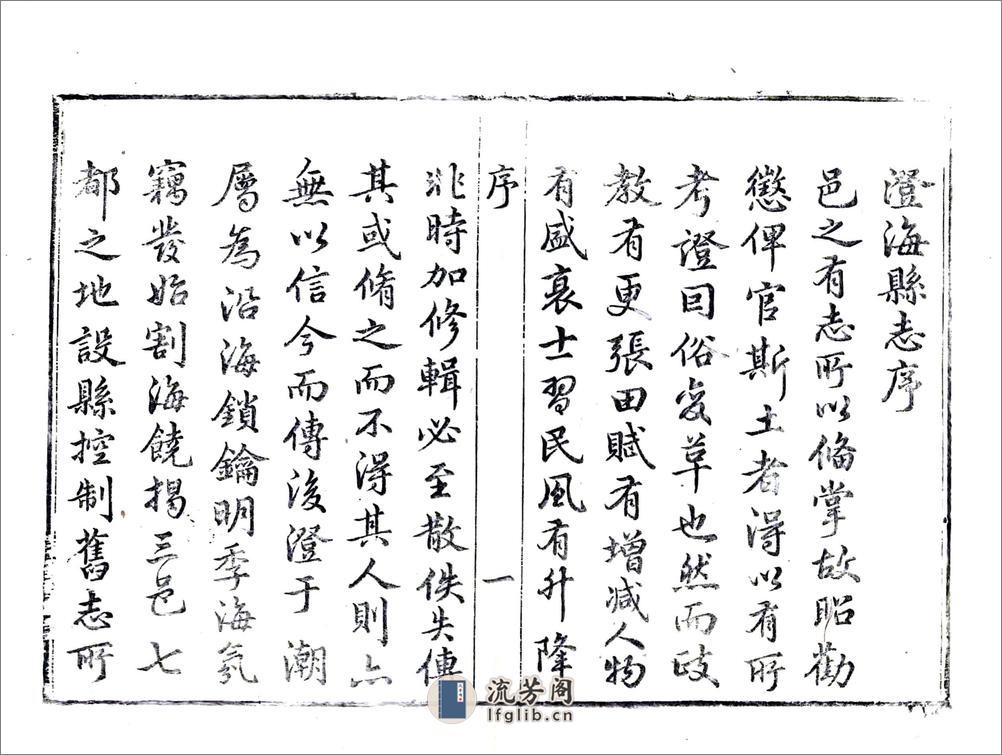 澄海縣志序
邑之有志所以俻掌故昭勸
懲俾官斯土者得以有所
考證因俗変革也然而政
教有更張田賦有增减人物
有盛衰士習民風有升降
序
一
非時加修輯必至散佚失傳
其或脩之而不得其人則亦
無以信今而傳後澄于潮
屬為沿海鎖鑰明季海氛
竊發始割海饒揭三邑七
都之地設縣控制舊志所
流芳阁
lfglib.cn